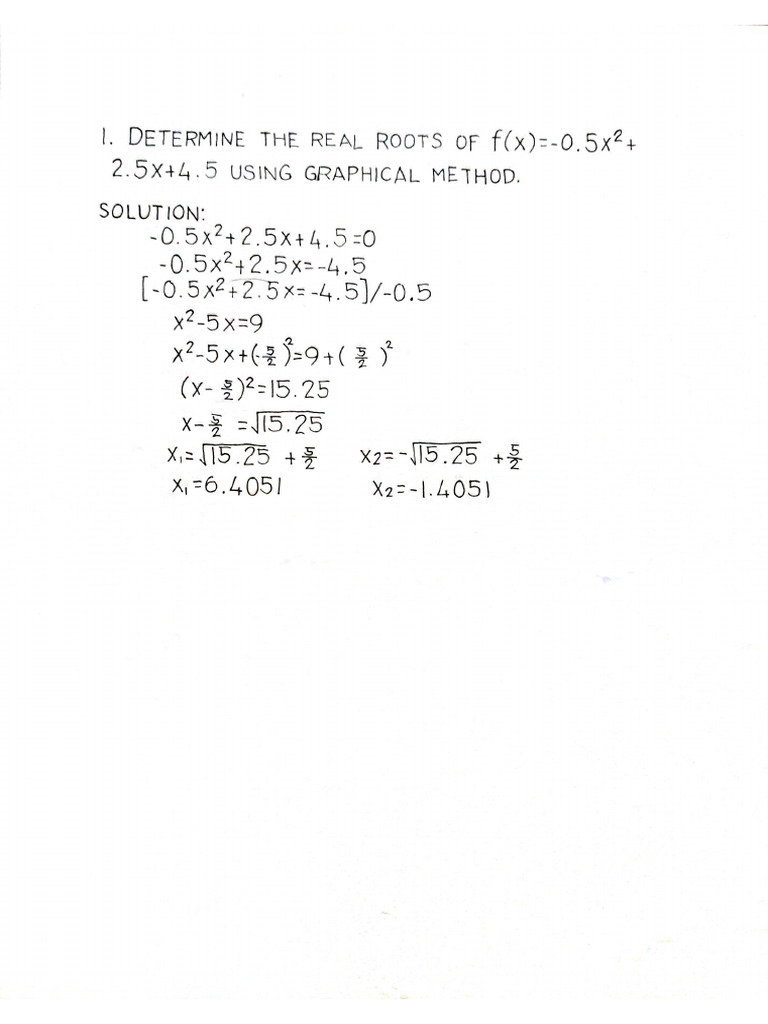 1. DETERMINE THE REAL ROOTS OF f(x)=-0.5x²+
2.5x+4.5 USING GRAPHICAL METHOD.
SOLUTION:
-0.5x²+2.5x+4.5=0
-0.5x²+2.5x=-4.5
[-0.5x²+2.5x=-4.5]/-0.5
x²-5x=9
x²-5x+(-5/2)²=9+(5/2)²
(x-5/2)²=15.25
x-5/2=√15.25
x₁=√15.25+5/2 x2=-√15.25+5/2
x₁=6.4051 x2=-1.4051